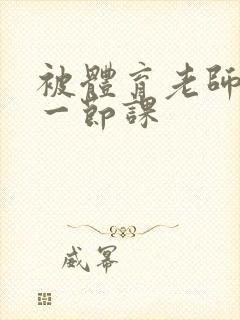 被體育老師
一節課
威幂